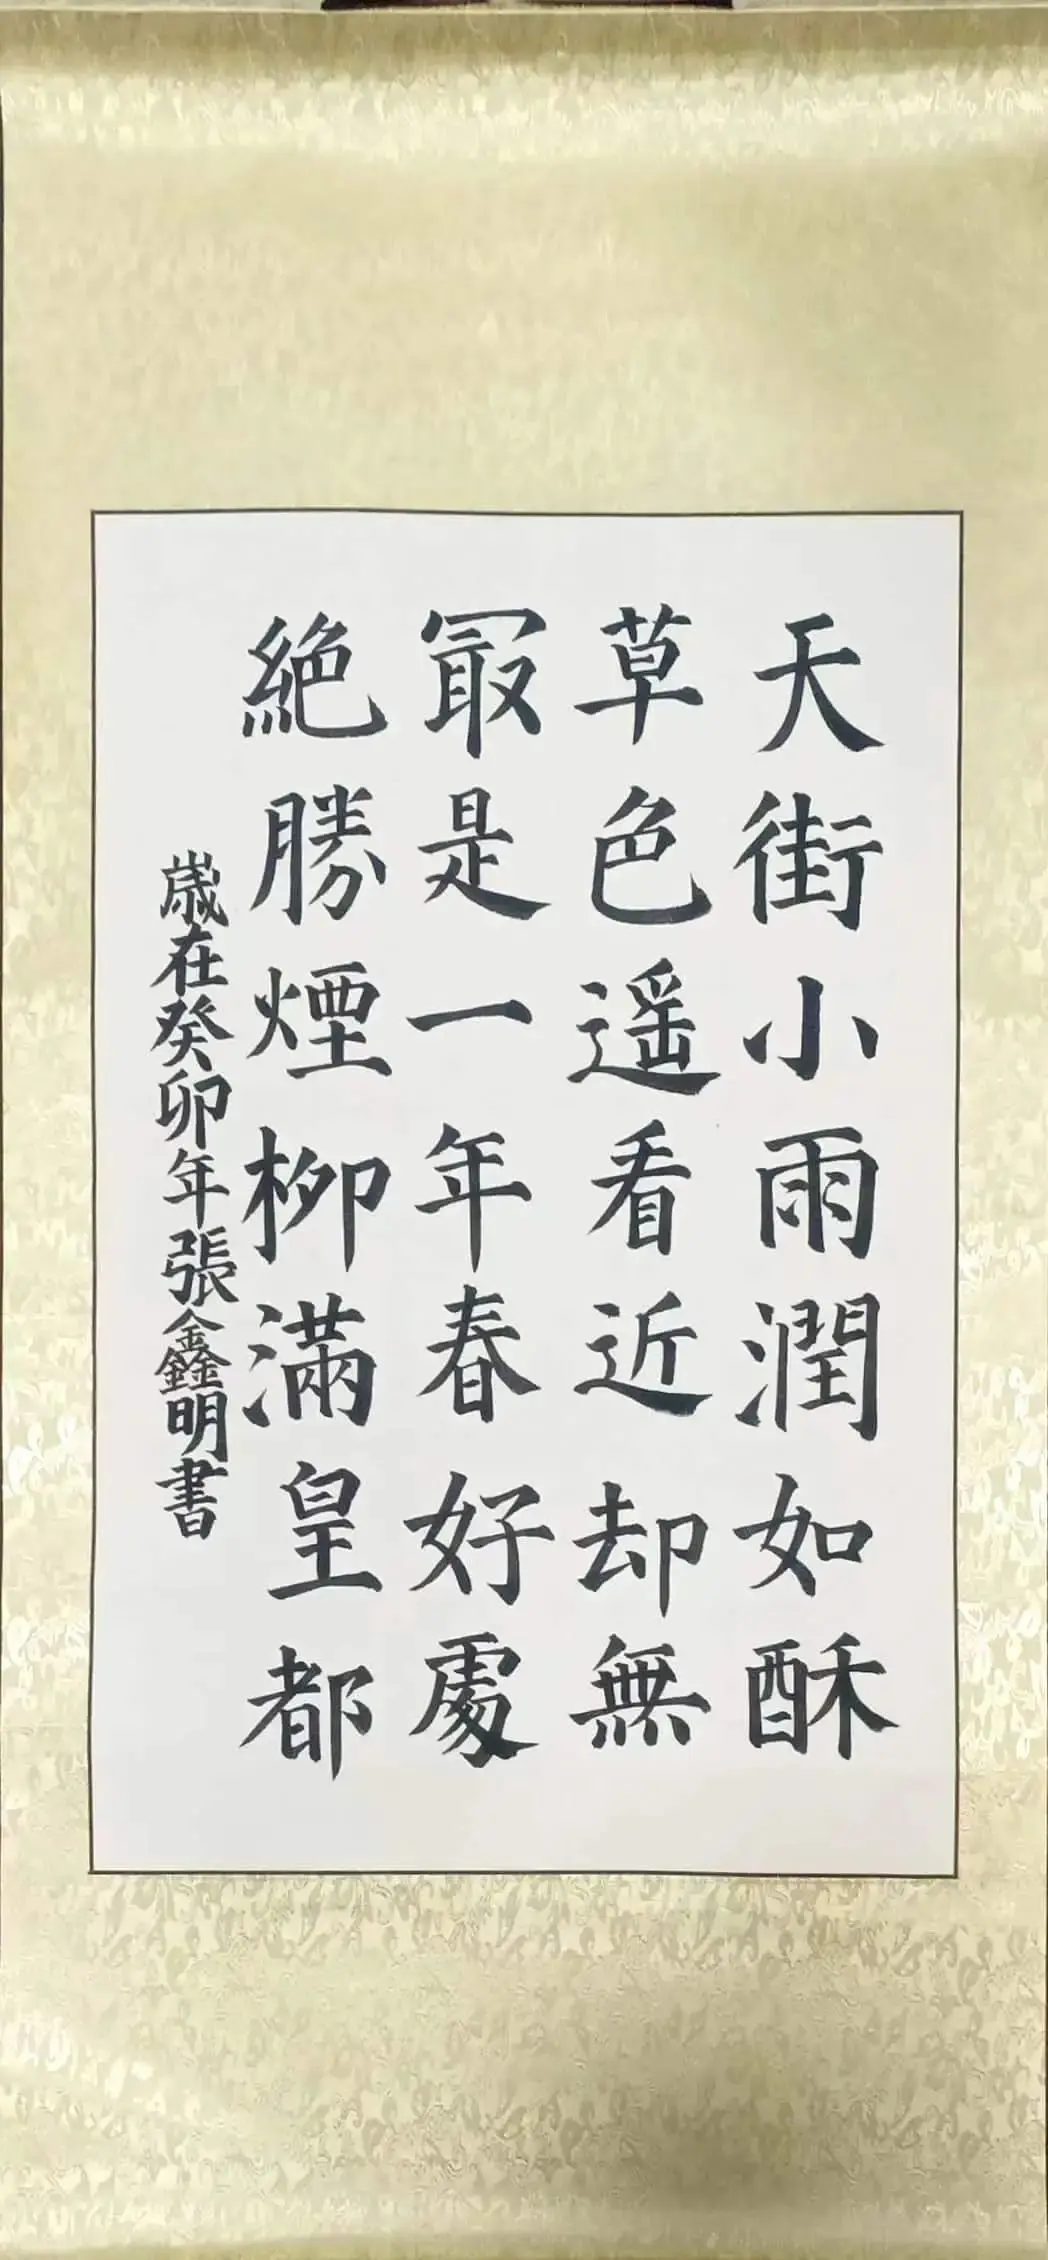 天街小雨潤如酥
草色遥看近却無
冣是一年春好處
絶勝煙柳滿皇都
歲在癸卯年張鑫明書